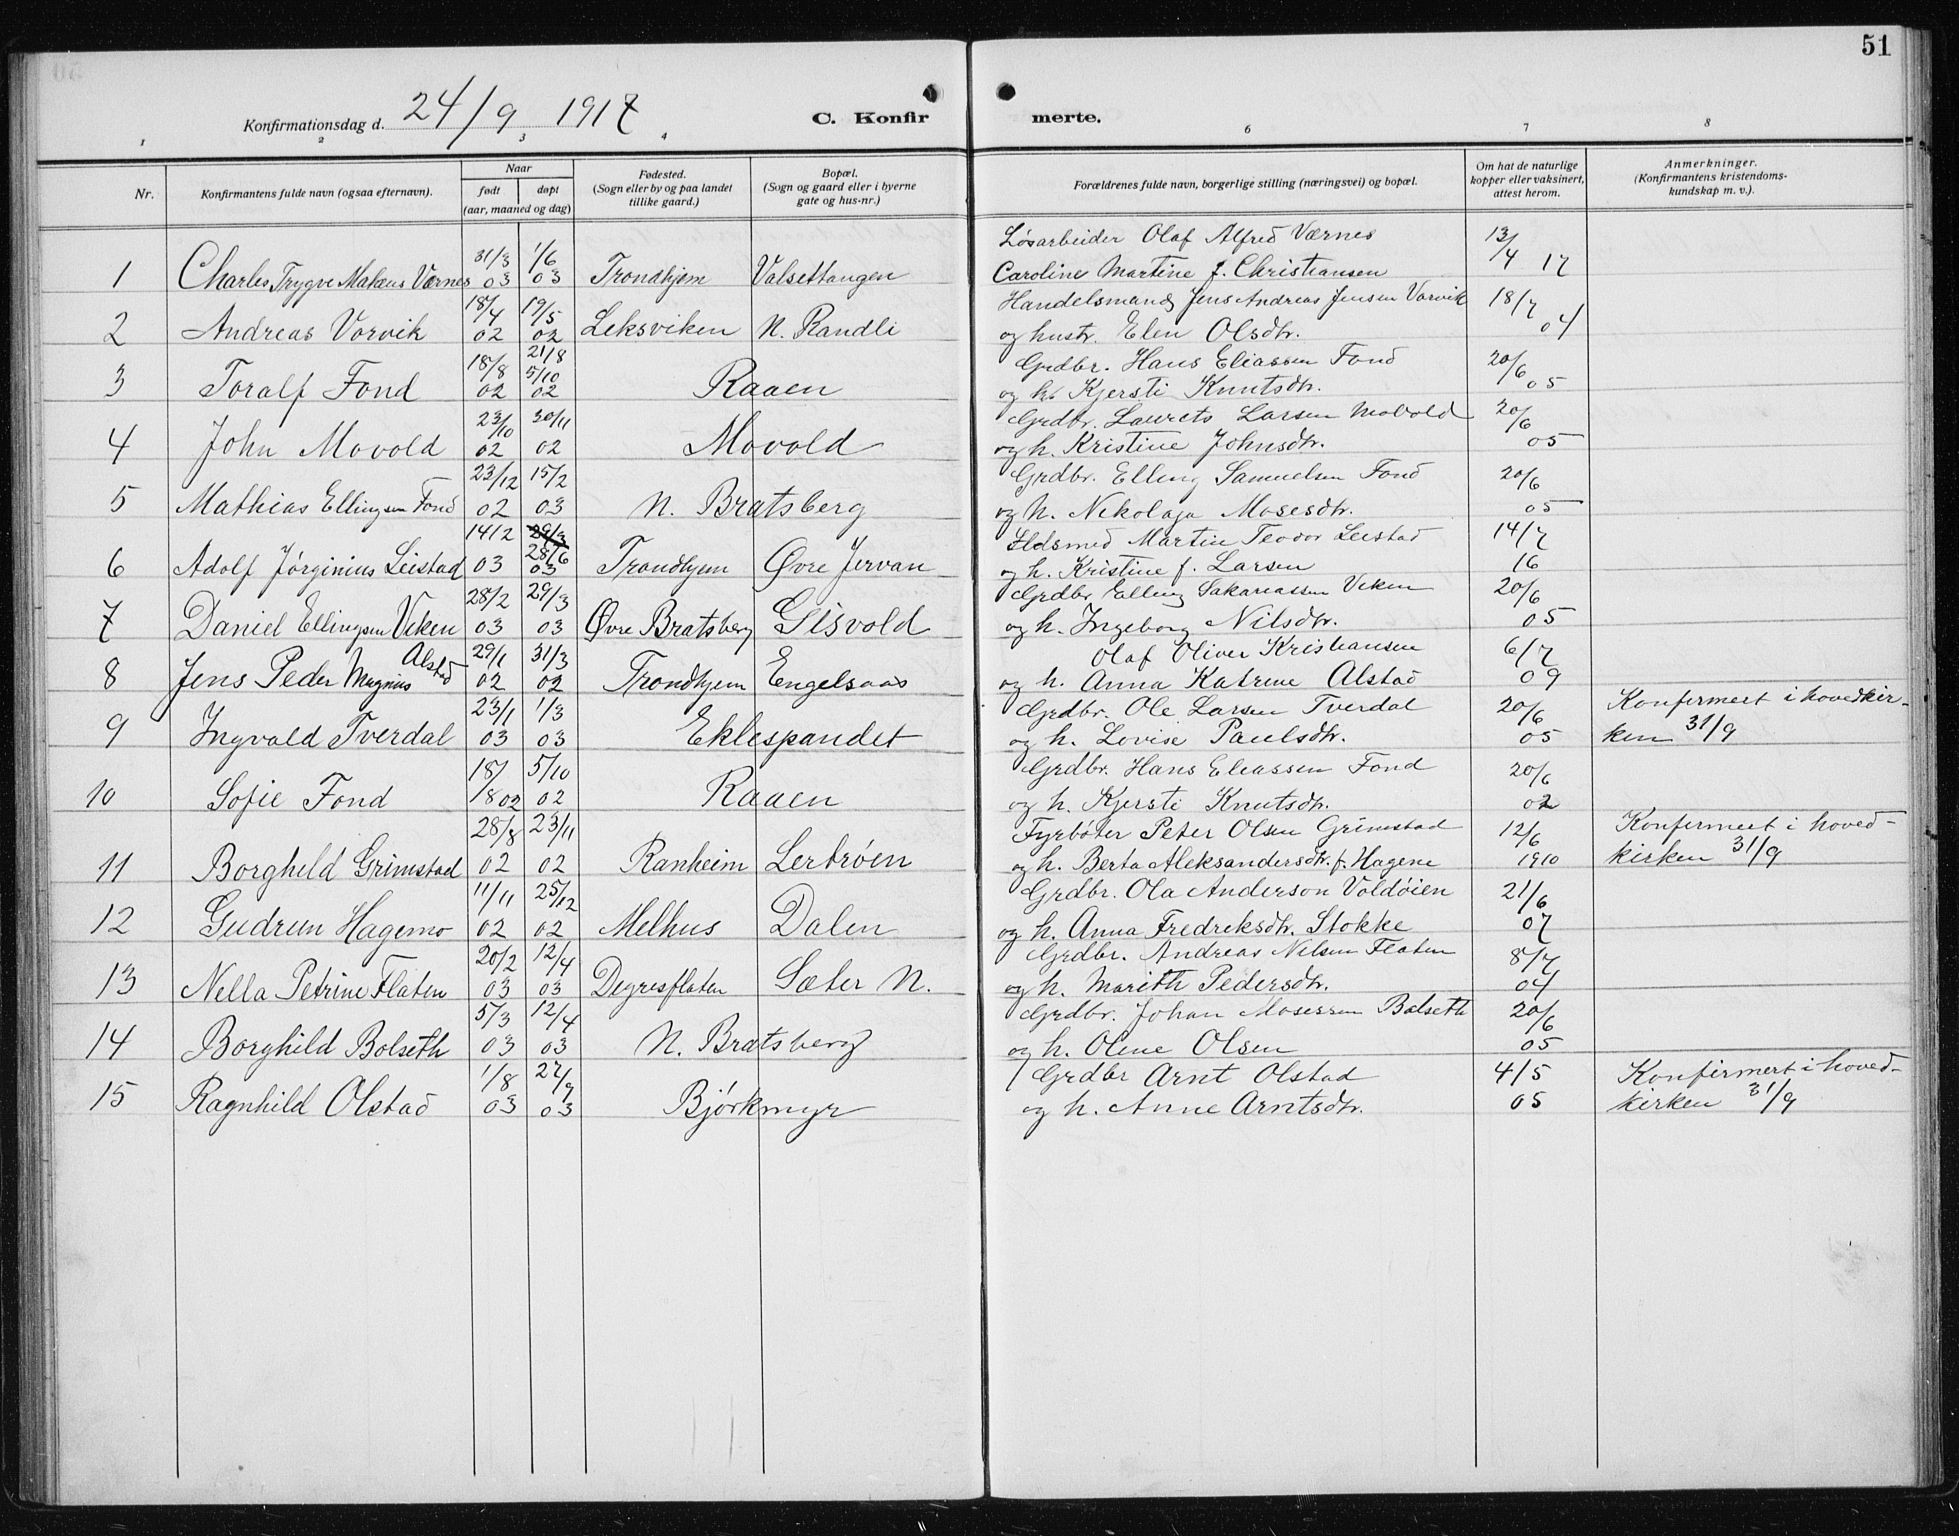 51
Konfirmationsdag d. 24/9 1917
C. Konfir merte.
1 2 3 4 6 7 8
Nr.
Konfirmantens fulde navn (ogsaa efternavn).
Naar
født døpt
(aar, maaned og dag)
Fødested.
(Sogn eller by og paa landet
tillike gaard.)
Bopæl.
(Sogn og gaard eller i byerne
gate og hus-nr.)
Forældrenes fulde navn, borgerlige stilling (næringsvei) og bopæl.
Om hat de naturlige
kopper eller vaksinert,
attest herom.
Anmerkninger.
(Konfirmantens kristendoms-
kundskap m. v.).
31/3 1/6 Løsarbeider Olaf Alfred Værnes 13/4
1 Charles Trygve Værnes 03 03 Trondhjem Valsettangen Caroline Martine f. Christiansen 17
18/4 19/5 Handelsmand Jens Andreas Jensen Vorvik 18/7
2 Andreas Vorvik 02 02 Leksviken N. Randli og hustr. Elen Olsdtr. 04
18/8 21/8 5/10 Grdbr. Hans Eliassen Fond 20/6
3 Toralf Fond 02 02 Raaen og h. Kjersti Knutsdtr. 05
23/10 30/11 Grdbr. Laurets Larsen Movold 20/6
4 John Movold 02 02 Movold og h. Kristine Johnsdtr. 05
23/12 15/2 Grdbr. Elling Samuelsen Fond 20/6
5 Mathias Ellingsen Fond 02 03 N. Bratsberg og h. Nikolaja Mosesdtr. 05
14/2 29/3 28/6 Martin Teodor Leistad 14/7
6 Adolf Jørginius Leistad 03 03 Trondhjem Øvre Jervan og h. Kristine f. Larsen 16
28/2 29/3 Grdbr Elling Sakariassen Viken 20/6
7 Daniel Ellingsen Viken 03 03 Øvre Bratsberg Gisvold og h. Ingeborg Nilsdtr. 05
Alstad 29/1 31/3 Olaf Oliver Kristiansen 6/7
8 Jens Peder Magnus 02 02 Trondhjem Engelsaas og h. Anna Katrine Alstad 09
23/1 1/3 Grdbr. Ole Larsen Tverdal 20/6 Konfirmert i hovedkir-
9 Ingvald Tverdal 03 03 Eklespandet og h. Lovise Paulsdtr. 05 ken 31/9
18/8 5/10 Grdbr. Hans Eleassen Fond 20/6
10 Sofie Fond 02 02 Raaen og h. Kjersti Knutsdtr. 02
28/8 23/11 Fyrbøter Peter Olsen Grimstad 12/6 Konfirmert i hoved-
11 Borghild Grimstad 02 02 Ranheim Lerbrøen og h. Berta Aleksandersdtr. f. Hagene 1910 kirken 31/9
11/11 25/12 Grdbr. Ola Anderson Voldøien 21/6
12 Gudrun Hagemo 02 02 Melhus Dalen og h. Anna Fredriksdtr. Stokke 07
20/2 12/4 Grdbr. Andreas Nilsen Flaten 8/7
13 Nella Petrine Flaten 03 03 Degresflaten Sæter N. og h. Marith Pedersdtr. 04
5/3 12/4 Grdbr. Johan Mosessen Bolseth 20/6
14 Borghild Bolseth 03 03 N. Bratsberg og h. Oline Olsen 05
1/8 27/9 Grdbr Arnt Olstad 4/5 Konfirmert i hoved-
15 Ragnhild Olstad 03 03 Bjørkmyr og h. Anne Arntsdtr. 05 kirken 31/9